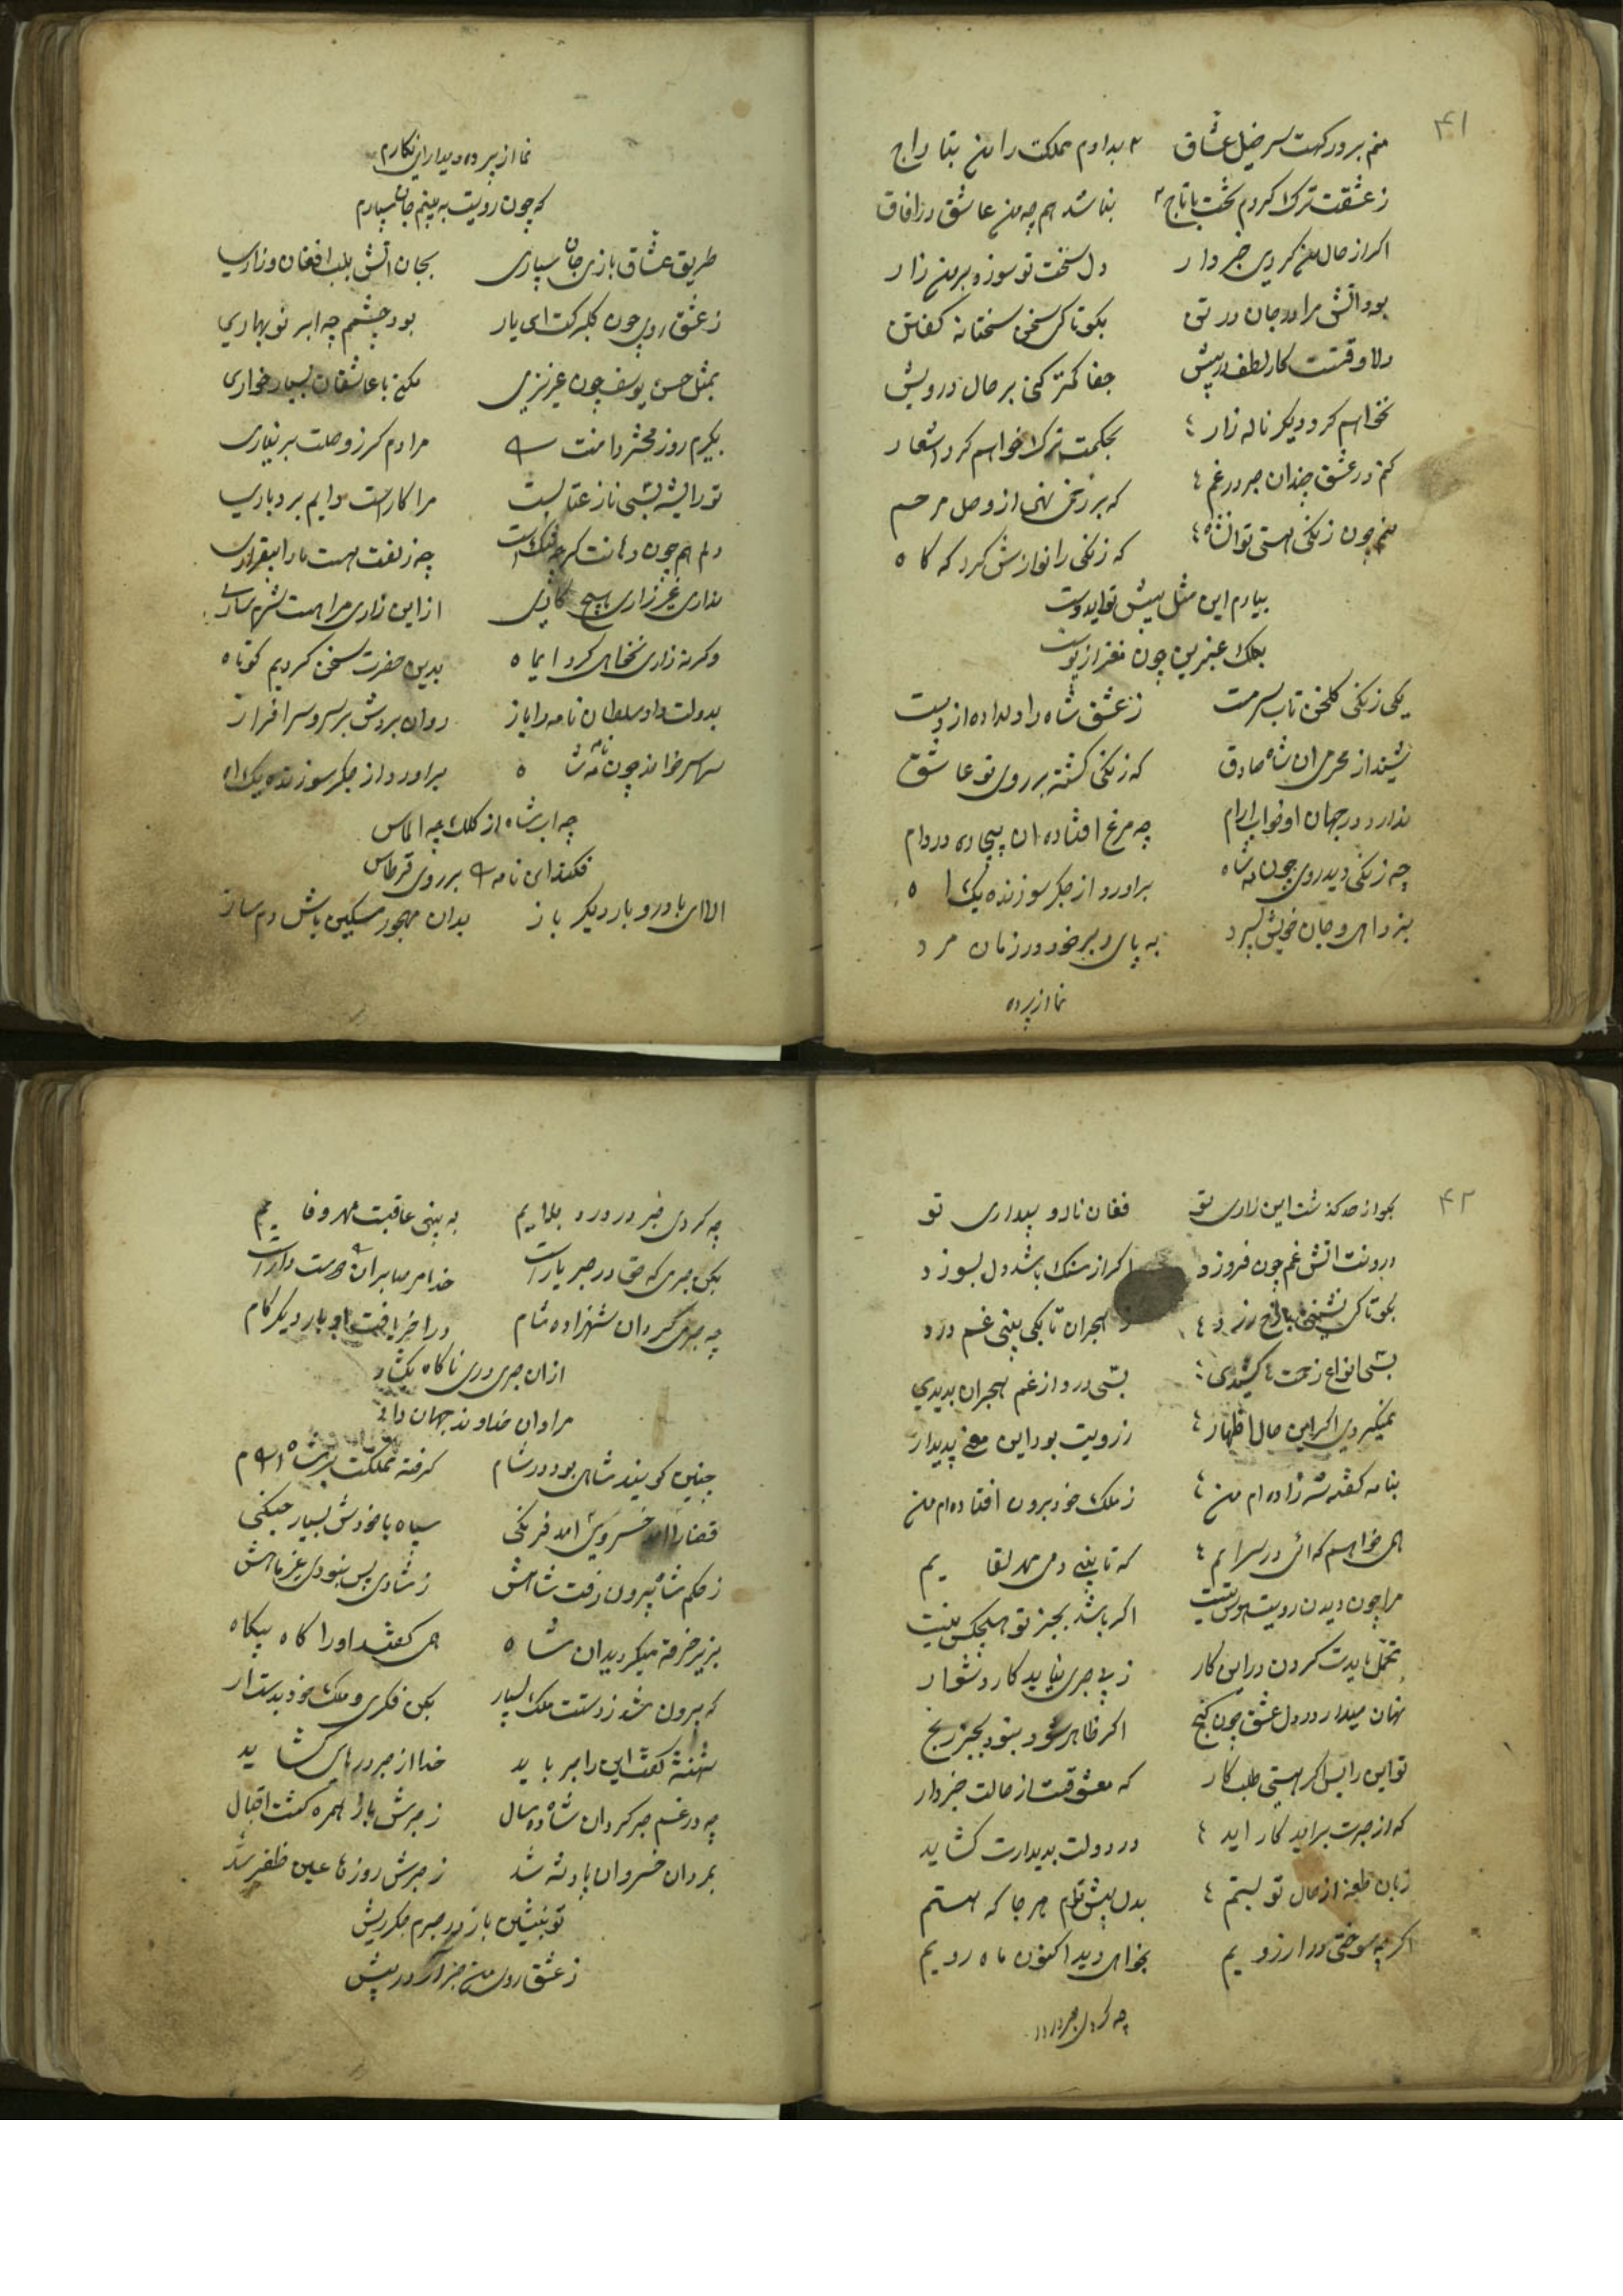 ۴۱
منم بر درگهت سر خیل عشاق بدادم مملکت را من بتاراج
ز عشقت ترک کردم تخت با تاج نباشد هم چه من عاشق در آفاق
اگر از حال من کردی خبردار دل سخت تو سوزد بر من زار
بود آتش مرا در جان در تن بگو تا کی سخن سختانه گفتن
دلا وقتست کار لطف در پیش جفا کمتر کنی بر حال درویش
نخواهم کرد دیگر ناله زار بحکمت ترک خواهم کرد اشعار
کنم در عشق چندان صبر در غم که بر زخمی نهی از وصل مرحم
منم چون زنکی هستی تو آن شاه که زنکی را نوازش کرد که گاه
بیارم این مثل پیش تو ایدوست
بکلک عنبرین چون نغز از پوست
یکی زنکی گلخن تاب سرمست ز عشق شاه را دل داده از دست
شنید از محرمی آن شاه صادق که زنکی گشته بر روی تو عاشق
ندارد در جهان او خواب آرام چه مرغ افتاده آن بیچاره در دام
چه زنکی دید روی چون مه شاه برآورد از جگر سوزنده یک اه
بزد اهی و جان خویش بسپرد به پای دلبر خود در زمان مرد
نما از پرده
نما از پرده دیدار ای نکارم
که چون رویت به بینم جان سپارم
طریق عشاق بازی جان سپاری بجان آتش بلب افغان و زاری
ز عشق روی چون گلبرکت ای یار بود چشمم چه ابر نو بهاری
بمثل حسن یوسف چون عزیزی مکن با عاشقان بسیار خواری
بگیرم روز محشر دامنت را مرادم کر ز وصلت بر نیاری
تو را پیشه بتی ناز عتابست مرا کارست دایم بردباری
دلم هم چون دهانت کرچه تنک است چه زلفت هست ما را بیقراری
نداری غیر زاری هیچ کاری از این زاری مرا هست شرمساری
وکرنه زاری نخواهی کرد ایماه بدین حضرت سخن کردیم کوتاه
بدولت داد سلطان نامه را باز روان بردش بر سرو سرافراز
سراسر خواند چون نامه شاه برآورد از جگر سوزنده یک اه
چه آن شاه از کلک چه الماس
فکند این نامه را بر روی قرطاس
الا ای باد رو بار دیکر باز بدان مهجور مسکین باش دم ساز
۴۲
بکو از حد گذشت این زاری تو فغان ناله و بیداری تو
درونت آتش غم چون فروزد اکر از سنک باشد دل بسوزد
بکو تا کی نشینی با رخ زرد ز هجران تا بکی بینی غم درد
بسی انواع زحمت ها کشیدی بسی درد از غم هجران بدیدی
نمیکردی اکر این حال اظهار ز رویت بود این معنی پدیدار
بنامه گفته شه زاده ام من ز ملک خود برون افتاده ام من
همی خواهم که آئی در سرایم که تا بینی دمی مهر لقایم
مرا چون دیدن رویت هوس نیست اکر باشد بجز تو هیچکس نیست
تحمل بایدت کردن در این کار ز بی صبری نیاید کار دشوار
نهان میدار در دل عشق چون کنج اکر ظاهر شود نبود بجز رنج
تو این را بس اکر هستی طلب کار که معشوقت از حالت خبردار
که از صبرت براید کار اید در دولت بدیدارت کشاید
زبان طعنه از حال تو بستم بدل پیش توام هر جا که هستم
اکرچه سوختی در آرزویم بخواهی دید اکنون ماه رویم
چه کردی صبر در درد
چه کردی صبر در درد بلایم به بینی عاقبت مهر و فایم
بکن صبری که حق در صبر یارست خدا مر صابران را دوست دارست
چه صبری کرد آن شهزاده شام در آخر یافت او بار دیکر کام
از آن صبری دری ناکاه بکشاد
مراد آن خداوند جهان داد
چنین کویند شاهی بود در شام گرفته مملکت بر شاه آرام
قضا را آمد خسروی امد فرنکی سپاه با خودش بسیار جنکی
ز حکم شاه بیرون رفت شاهش ز شادی پس نبودی غیر آهش
بزیر خرقه میکردید آن شاه همی گفتند او را گاه بیکاه
که بیرون شد ز دستت ملک بسیار بکن فکری و ملک خود بدست آر
شهنشه گفت این را صبر باید خدا از صبر درهای کشاید
چه در غم صبر کرد آن شاه ده سال ز صبرش باز همره گشت اقبال
بمرد آن خسرو آن پادشه شد ز صبرش روزها عین ظفر شد
تو بنشین باز در صبرم جکر ریش
ز عشق روی من صبر آر در پیش